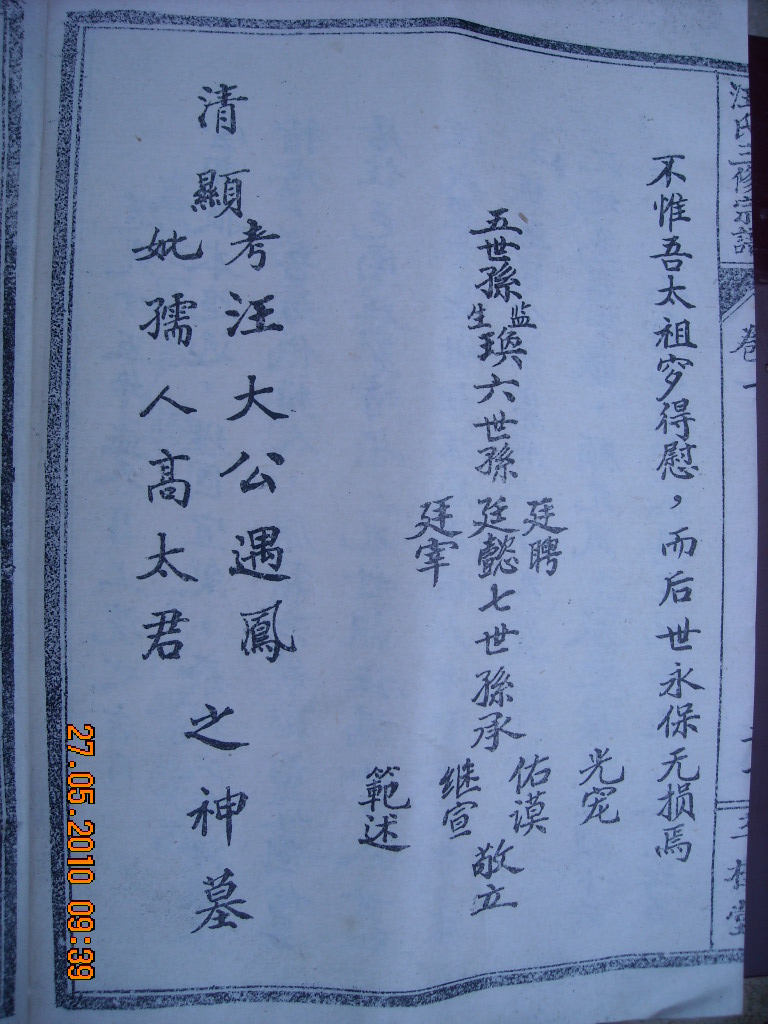 汪氏三修宗譜
卷一
三槐堂
不惟吾太祖穸得慰，而后世永保无损焉
五世孫监生瑍六世孫廷聘廷懿廷宰七世孫承光宠佑谟继宣範述敬立
清顯考汪大公遇鳳
妣孺人高太君
之神墓
27.05.2010 09:39